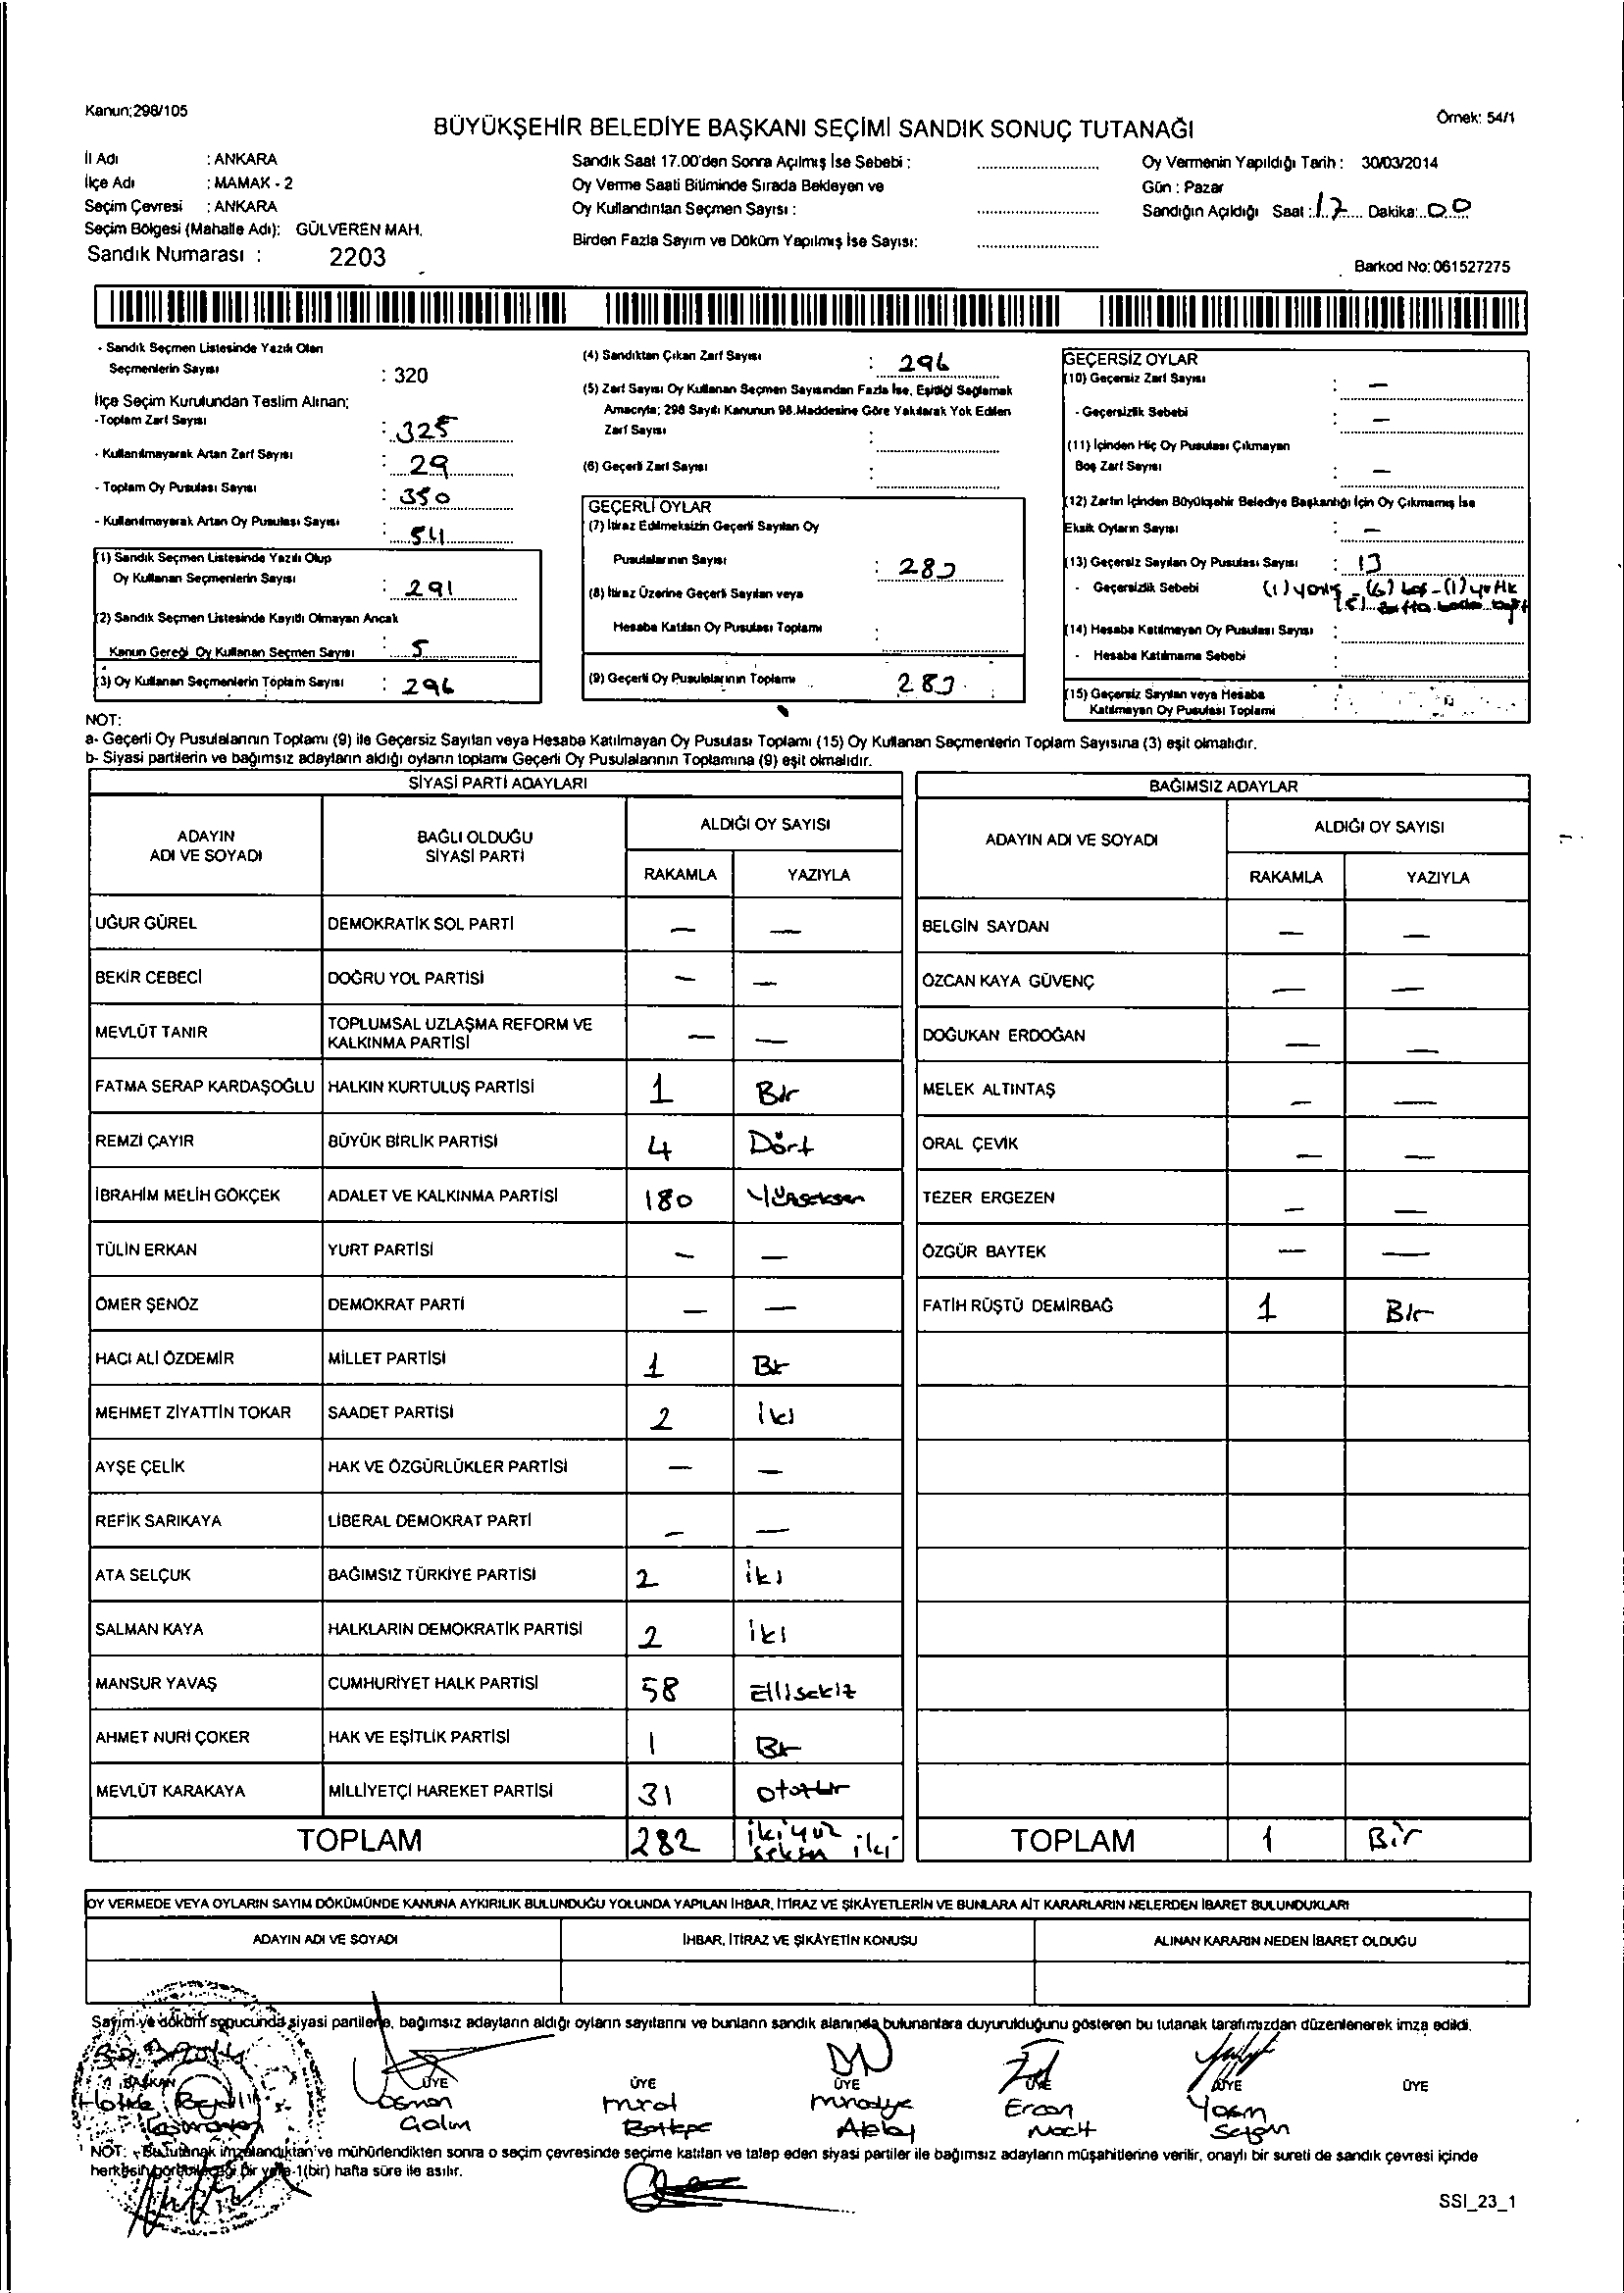 Kanun;298/105
Örnek: 54/1
BÜYÜKŞEHİR BELEDİYE BAŞKANI SEÇİMİ SANDIK SONUÇ TUTANAĞI
İl Adı : ANKARA
İlçe Adı : MAMAK - 2
Seçim Çevresi : ANKARA
Seçim Bölgesi (Mahalle Adı): GÜLVEREN MAH.
Sandık Numarası : 2203
Sandık Saat 17.00'den Sonra Açılmış İse Sebebi :
Oy Verme Saati Bitiminde Sırada Bekleyen ve
Oy Kullandırılan Seçmen Sayısı :
Birden Fazla Sayım ve Döküm Yapılmış İse Sayısı:
Oy Vermenin Yapıldığı Tarih : 30/03/2014
Gün : Pazar
Sandığın Açıldığı Saat : 17 Dakika: 00
Barkod No: 061527275
- Sandık Seçmen Listesinde Yazılı Olan
Seçmenlerin Sayısı : 320
İlçe Seçim Kurulundan Teslim Alınan;
-Toplam Zarf Sayısı : 325
- Kullanılmayarak Artan Zarf Sayısı : 29
- Toplam Oy Pusulası Sayısı : 350
- Kullanılmayarak Artan Oy Pusulası Sayısı : 54
(1) Sandık Seçmen Listesinde Yazılı Olup
Oy Kullanan Seçmenlerin Sayısı : 291
(2) Sandık Seçmen Listesinde Kayıtlı Olmayan Ancak
Kanun Gereği Oy Kullanan Seçmen Sayısı : 5
(3) Oy Kullanan Seçmenlerin Toplam Sayısı : 296
(4) Sandıktan Çıkan Zarf Sayısı : 296
(5) Zarf Sayısı Oy Kullanan Seçmen Sayısından Fazla İse, Eşitliği Sağlamak
Amacıyla; 298 Sayılı Kanunun 98.Maddesine Göre Yakılarak Yok Edilen
Zarf Sayısı :
(6) Geçerli Zarf Sayısı :
GEÇERLİ OYLAR
(7) İtiraz Edilmeksizin Geçerli Sayılan Oy
Pusulalarının Sayısı : 283
(8) İtiraz Üzerine Geçerli Sayılan veya
Hesaba Katılan Oy Pusulası Toplamı :
(9) Geçerli Oy Pusulalarının Toplamı 283
GEÇERSİZ OYLAR
(10) Geçersiz Zarf Sayısı : —
- Geçersizlik Sebebi : —
(11) İçinden Hiç Oy Pusulası Çıkmayan
Boş Zarf Sayısı : —
(12) Zarfın İçinden Büyükşehir Belediye Başkanlığı İçin Oy Çıkmamış İse
Eksik Oyların Sayısı : —
(13) Geçersiz Sayılan Oy Pusulası Sayısı : 13
- Geçersizlik Sebebi (1) yanlış - (6) boş - (1) yırtık
(14) Hesaba Katılmayan Oy Pusulası Sayısı :
- Hesaba Katılmama Sebebi :
(15) Geçersiz Sayılan veya Hesaba
Katılmayan Oy Pusulası Toplamı
NOT:
a- Geçerli Oy Pusulalarının Toplamı (9) ile Geçersiz Sayılan veya Hesaba Katılmayan Oy Pusulası Toplamı (15) Oy Kullanan Seçmenlerin Toplam Sayısına (3) eşit olmalıdır.
b- Siyasi partilerin ve bağımsız adayların aldığı oyların toplamı Geçerli Oy Pusulalarının Toplamına (9) eşit olmalıdır.
SİYASİ PARTİ ADAYLARI
ADAYIN ADI VE SOYADI
BAĞLI OLDUĞU SİYASİ PARTİ
ALDIĞI OY SAYISI
RAKAMLA YAZIYLA
UĞUR GÜREL DEMOKRATİK SOL PARTİ — —
BEKİR CEBECİ DOĞRU YOL PARTİSİ — —
MEVLÜT TANIR TOPLUMSAL UZLAŞMA REFORM VE
KALKINMA PARTİSİ — —
FATMA SERAP KARDAŞOĞLU HALKIN KURTULUŞ PARTİSİ 1 Bir
REMZİ ÇAYIR BÜYÜK BİRLİK PARTİSİ 4 Dört
İBRAHİM MELİH GÖKÇEK ADALET VE KALKINMA PARTİSİ 180 Yüzseksen
TÜLİN ERKAN YURT PARTİSİ — —
ÖMER ŞENÖZ DEMOKRAT PARTİ — —
HACI ALİ ÖZDEMİR MİLLET PARTİSİ 1 Bir
MEHMET ZİYATTİN TOKAR SAADET PARTİSİ 2 İki
AYŞE ÇELİK HAK VE ÖZGÜRLÜKLER PARTİSİ — —
REFİK SARIKAYA LİBERAL DEMOKRAT PARTİ — —
ATA SELÇUK BAĞIMSIZ TÜRKİYE PARTİSİ 2 iki
SALMAN KAYA HALKLARIN DEMOKRATİK PARTİSİ 2 iki
MANSUR YAVAŞ CUMHURİYET HALK PARTİSİ 58 Ellisekiz
AHMET NURİ ÇOKER HAK VE EŞİTLİK PARTİSİ 1 Bir
MEVLÜT KARAKAYA MİLLİYETÇİ HAREKET PARTİSİ 31 Otuzbir
TOPLAM 282 ikiyüz seksen iki
BAĞIMSIZ ADAYLAR
ADAYIN ADI VE SOYADI
ALDIĞI OY SAYISI
RAKAMLA YAZIYLA
BELGİN SAYDAN — —
ÖZCAN KAYA GÜVENÇ — —
DOĞUKAN ERDOĞAN — —
MELEK ALTINTAŞ — —
ORAL ÇEVİK — —
TEZER ERGEZEN — —
ÖZGÜR BAYTEK — —
FATİH RÜŞTÜ DEMİRBAĞ 1 Bir
TOPLAM 1 Bir
OY VERMEDE VEYA OYLARIN SAYIM DÖKÜMÜNDE KANUNA AYKIRILIK BULUNDUĞU YOLUNDA YAPILAN İHBAR, İTİRAZ VE ŞİKÂYETLERİN VE BUNLARA AİT KARARLARIN NELERDEN İBARET BULUNDUKLARI
ADAYIN ADI VE SOYADI İHBAR, İTİRAZ VE ŞİKÂYETİN KONUSU ALINAN KARARIN NEDEN İBARET OLDUĞU
Sayım ve döküm sonucunda siyasi partilerle, bağımsız adayların aldığı oyların sayılarını ve bunların sandık alanında bulunanlara duyurulduğunu gösteren bu tutanak tarafımızdan düzenlenerek imza edildi.
BAŞKAN ÜYE ÜYE ÜYE ÜYE ÜYE ÜYE
Osman Ercan
NOT: - Bu tutanak imzalandıktan ve mühürlendikten sonra o seçim çevresinde seçime katılan ve talep eden siyasi partiler ile bağımsız adayların müşahitlerine verilir, onaylı bir sureti de sandık çevresi içinde
herkesin görebileceği bir yere 1(bir) hafta süre ile asılır.
SSI_23_1